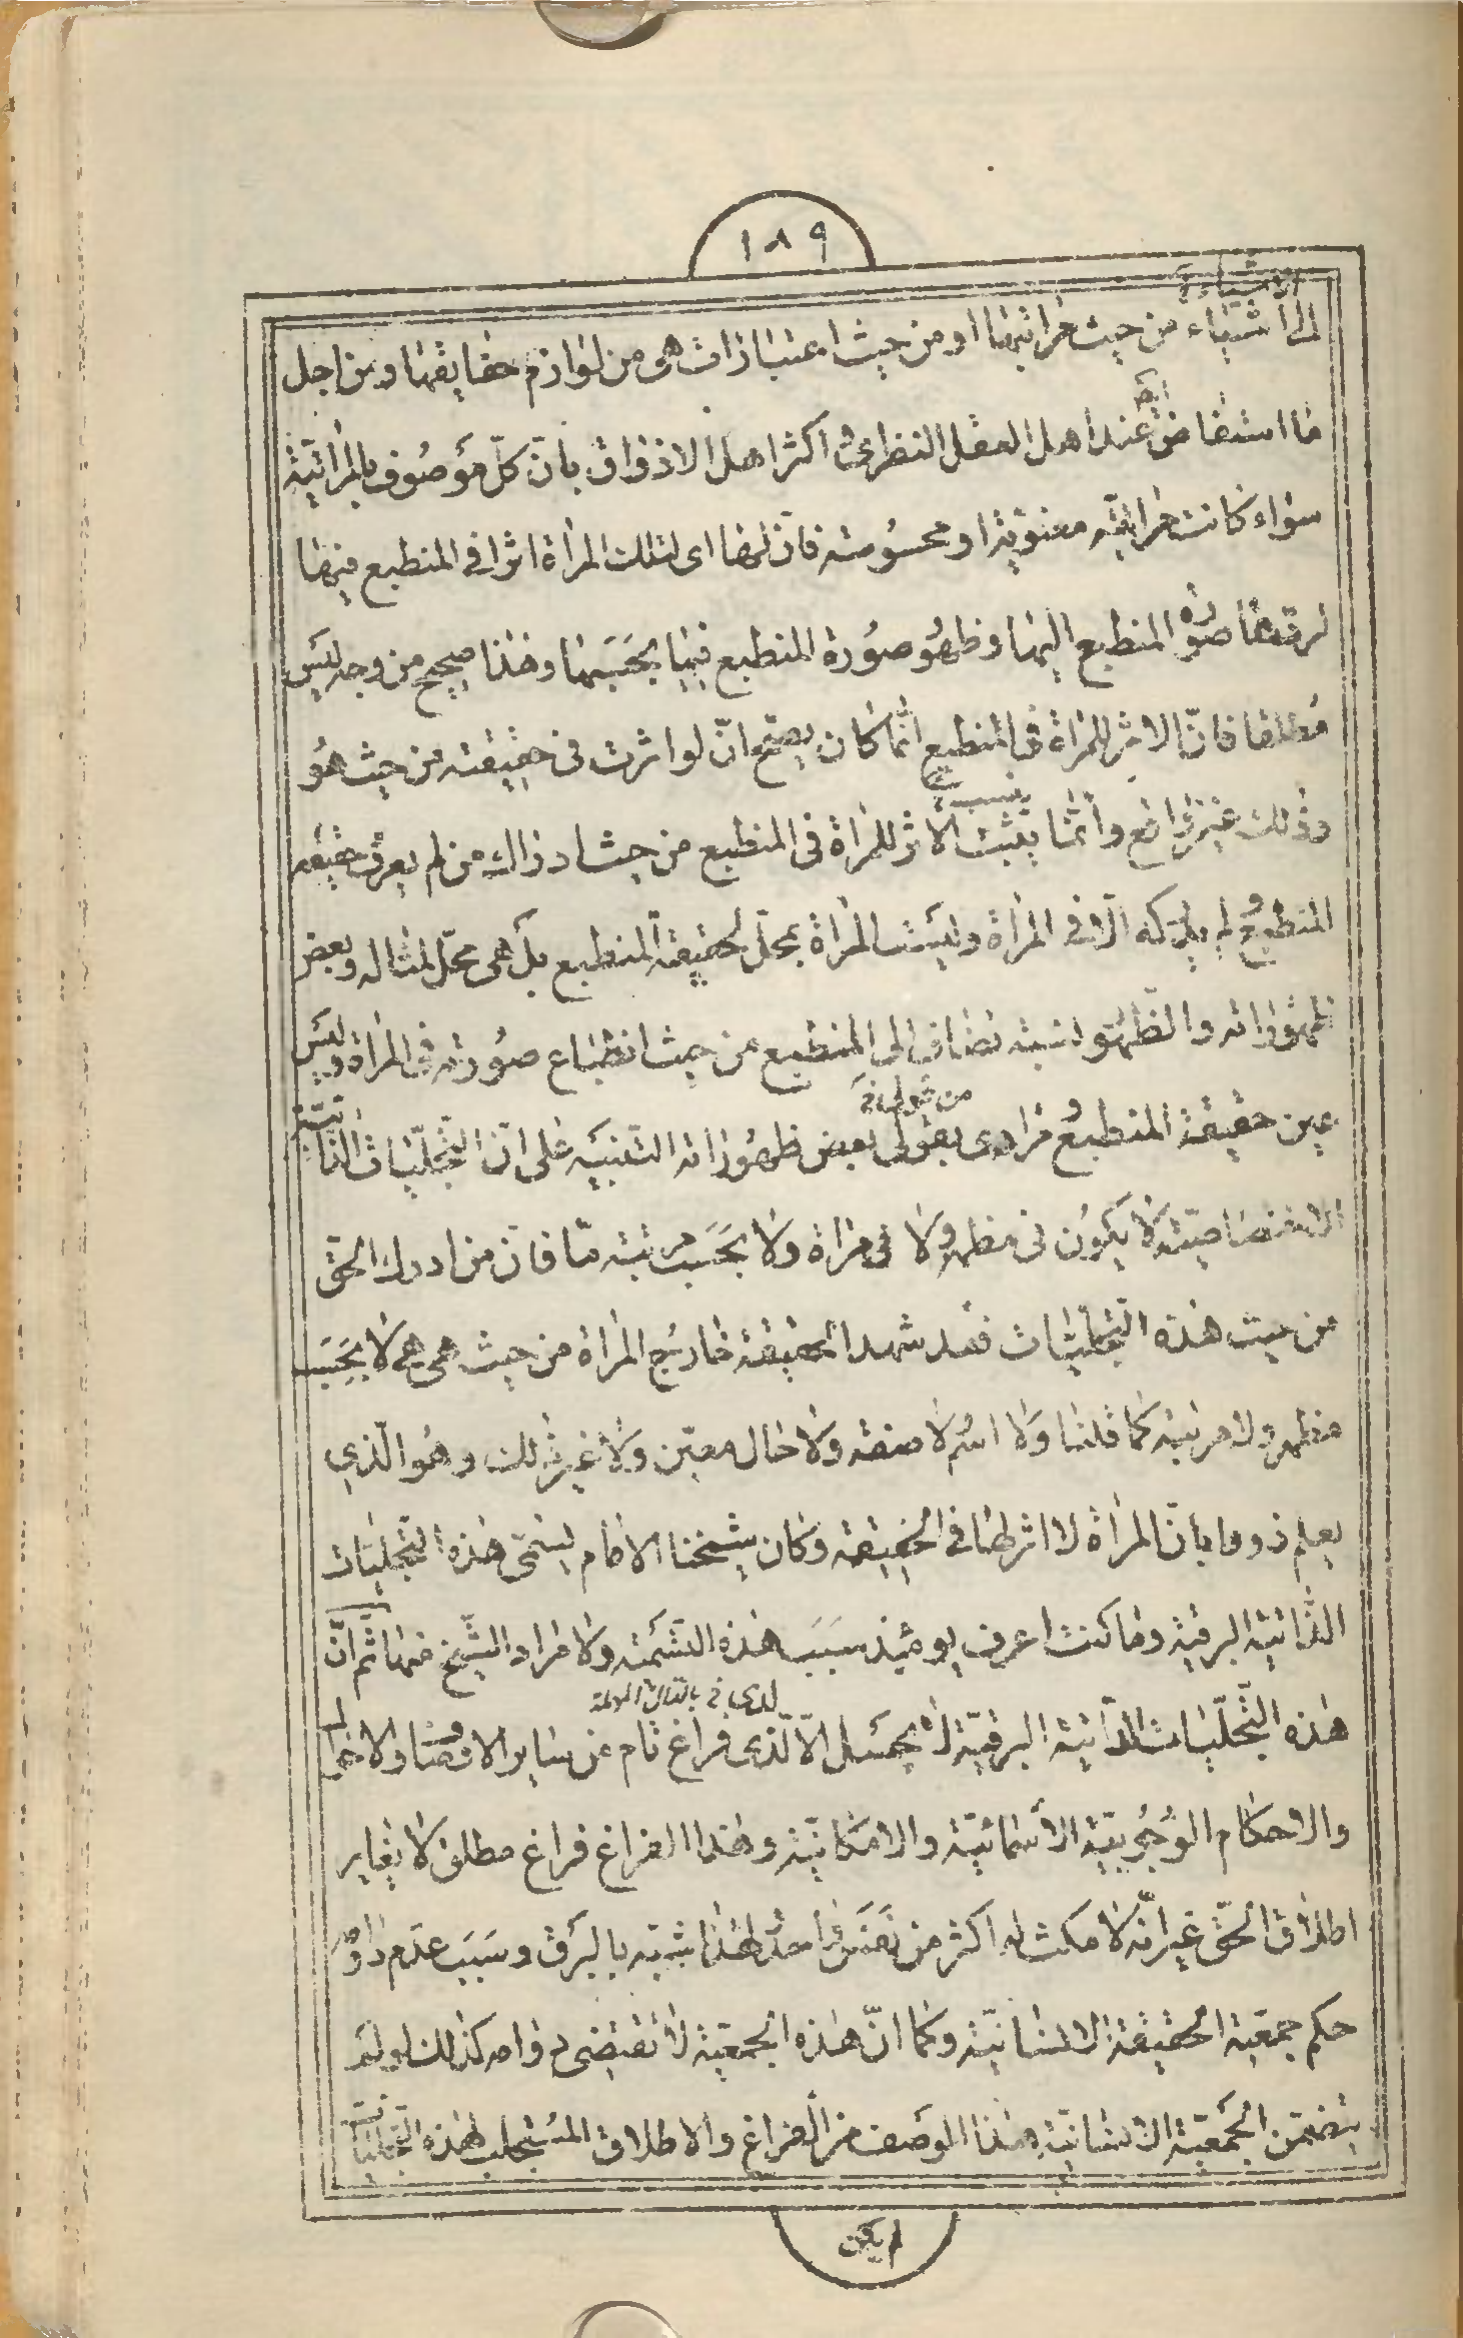 ١٨٩
الاشياء
الى اشياء من حيث مراتبها او من حيث اعتبارات هى من لوازم حقايقها ومن اجل
ما استفاض عند اهل العقل النظرى و اكثر اهل الاذواق بان كلّ موصوف بالمرآتيّة
سواء كانت مرآتيّته معنويّة او محسوسة فانّ لها اى لتلك المرآة اثرا فى المنطبع فيها
لردّها صورة المنطبع اليها وظهور صورة المنطبع فيها بحسبها وهذا صحيح من وجه ليس
مطلقا فانّ الاثر للمرآة فى المنطبع انّما كان يصحّ ان لو اثرت فى حقيقته من حيث هو
وذلك غير واقع وانّما يثبت الأثر للمرآة فى المنطبع من حيث ادراك من لم يعرف حقيقة
المنطبع ولم يدركه الّا فى المرآة وليست المرآة بمحلّ لحقيقة المنطبع بل هى محلّ لمثاله وبعض
ظهوراته والظّهور نسبة تضاف الى المنطبع من حيث انطباع صورته فى المرآة وليس
عين حقيقة المنطبع ومرادى بقولى بعض ظهوراته التنبيه على انّ التّجلّيات الذّاتيّة
الاختصاصيّة لا يكون فى مظهر ولا فى مرآة ولا بحسب مرتبة ما فان من ادرك الحقّ
من حيث هذه التّجلّيات فقد شهد الحقيقة خارج المرآة من حيث هى هى لا بحسب
مظهر ولا مرتبة كما قلنا ولا اسم لا صفة ولا حال معيّن ولا غير ذلك وهو الّذى
يعلم ذوقا بانّ المرآة لا اثر لها فى الحقيقة وكان شيخنا الامام يسمّى هذه التّجليات
الذّاتية البرقية وما كنت اعرف يومئذ سبب هذه التسمية ولا مراد الشّيخ منها ثم انّ
هذه التّجلّيات الذّاتية البرقيّة لا يحصل الاّ لذى فراغ تام عن ساير الاوصاف والاحوال
والاحكام الوجوبيّة الأسمائيّة والامكانيّة وهذا الفراغ فراغ مطلق لا يغاير
اطلاق الحقّ غير انّه لا مكث له اكثر من نفس واحد ولهذا شبّه بالبرق وسبب عدم دوامه
حكم جمعية الحقيقة الانسانيّة وكما انّ هذه الجمعيّة لا تقتضى دوامه كذلك لو لم
يتضمّن الجمعيّة الانسانيّة هذا الوصف من الفراغ والاطلاق المستجلب لهذه التّجلّيات
لم يكن